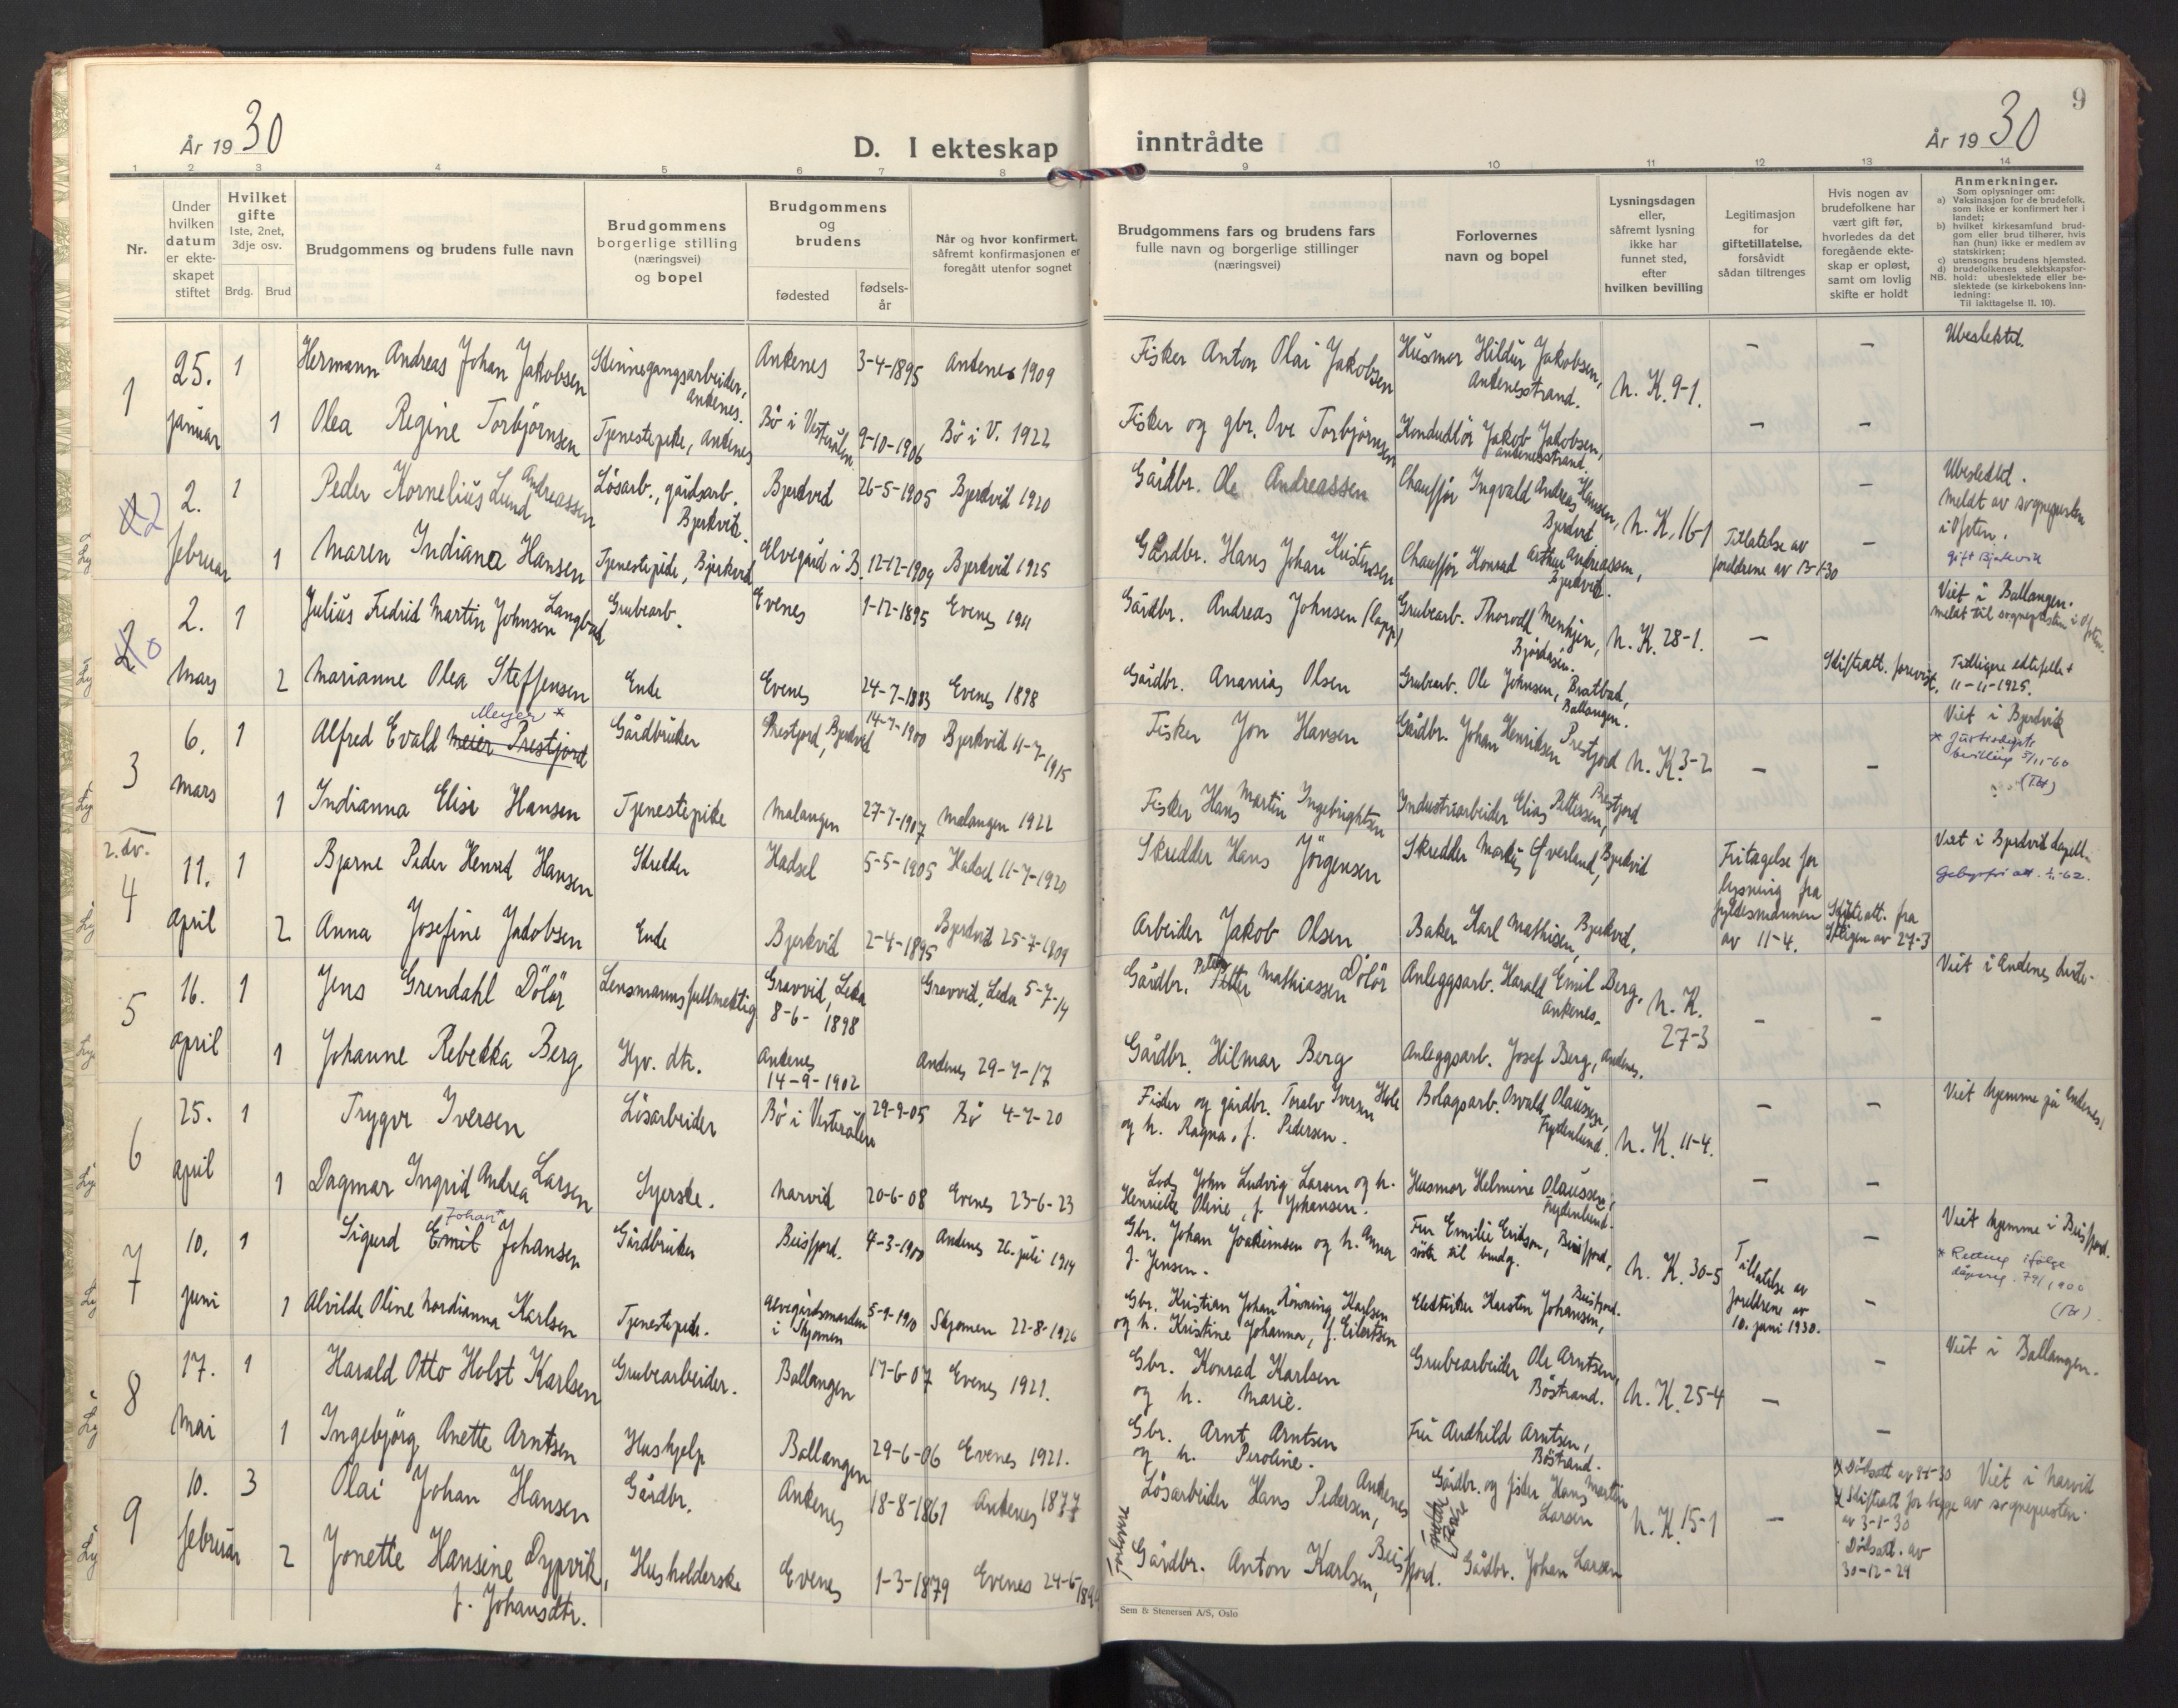 År 1930
D. I ekteskap
inntrådte
År 1930
9
1 2 3 4 5 6 7 8 9 10 11 12 13 14
Nr.
Under hvilken datum er ekteskapet stiftet
Hvilket gifte
1ste, 2net, 3dje osv.
Brdg. Brud
Brudgommens og brudens fulle navn
Brudgommens borgerlige stilling (næringsvei) og bopel
Brudgommens og brudens
fødested
fødselsår
Når og hvor konfirmert, såfremt konfirmasjonen er foregått utenfor sognet
Brudgommens fars og brudens fars fulle navn og borgerlige stillinger (næringsvei)
Forlovernes navn og bopel
Lysningsdagen eller, såfremt lysning ikke har funnet sted, efter hvilken bevilling
Legitimasjon for giftetillatelse, forsåvidt sådan tiltrenges
Hvis nogen av brudefolkene har vært gift før, hvorledes da det foregående ekteskap er opløst, samt om lovlig skifte er holdt
Anmerkninger.
Som oplysninger om:
a) Vaksinasjon for de brudefolk, som ikke er konfirmert her i landet;
b) hvilket kirkesamfund brudgom eller brud tilhører, hvis han (hun) ikke er medlem av statskirken;
c) utensogns brudens hjemsted.
d) brudefolkenes slektskapsforhold: ubeslektede eller beslektede (se kirkebokens innledning:
NB.
Til iakttagelse II, 10).
1 25. januar 1 Hermann Andreas Johan Jakobsen Stinnegangsarbeider, Ankenes. Ankenes 3-4-1895 Ankenes 1909 Fisker Anton Olai Jakobsen Husmor Hildur Jakobsen, Ankenesstrand. N. K. 9-1. – – Ubeslektet.
1 Olea Regine Torbjørnsen Tjenestepike, Ankenes Bø i Vesterålen 9-10-1906 Bø i V. 1922 Fisker og gbr. Ove Torbjørnsen Konduktør Jakob Jakobsen, Ankenesstrand. – –
2 2. februar 1 Peder Kornelius Lund Andreassen Løsarb., gårdsarb. Bjerkvik. Bjerkvik 26-5-1905 Bjerkvik 1920 Gårdbr. Ole Andreassen Chauffør Ingvald Andreas Hansen, Bjerkvik N. K. 16-1 – Ubeslektet. Meldt av sognepresten i Ofoten. gift Bjerkvik
1 Maren Indiana Hansen Tjenestepike, Bjerkvik Elvegård i B. 12-12-1909 Bjerkvik 1925 Gårdbr. Hans Johan Kristensen Chauffør Konrad Arthur Andreassen, Bjerkvik. Tillatelse av foreldrene av 13-1-30 –
2. mars 1 Julius Fredrik Martin Johnsen Langbad Grubearb. Evenes 1-12-1895 Evenes 1911 Gårdbr. Andreas Johnsen (lapp) Grubearb. Thorvald Menkjen, Bjørkåsen. N. K. 28-1. – Viet i Ballangen. Meldt til sognepresten i Ofoten.
2 Marianne Olea Steffensen Enke Evenes 24-7-1883 Evenes 1898 Gårdbr. Ananias Olsen Grubearb. Ole Johnsen, Bratbad, Ballangen. Skifteatt. forevist. Tidligere ektefelle + 11-11-1925.
3 6. mars 1 Alfred Evald Meier Prestjord Meyer * Gårdbruker Prestjord, Bjerkvik 14-7-1900 Bjerkvik 11-7-1915 Fisker Jon Hansen Gårdbr. Johan Henriksen Prestjord N. K. 3-2 – – Viet i Bjerkvik * Justisdepts bevilling 5/11-60
1 Indianna Elise Hansen Tjenestepike Malangen 27-7-1907 Malangen 1922 Fisker Hans Martin Ingebrightsen Industriarbeider Elias Pettersen, Prestjord
2. dv.
4 11. april 1 Bjarne Peder Henrik Hansen Skredder Hadsel 5-5-1905 Hadsel 11-7-1920 Skredder Hans Jørgensen Skredder Markus Øverland, Bjerkvik Fritagelse for lysning fra fylkesmannen av 11-4. Viet i Bjerkvik kapell.
2 Anna Josefine Jakobsen Enke Bjerkvik 2-4-1895 Bjerkvik 25-7-1909 Arbeider Jakob Olsen Baker Karl Mathisen, Bjerkvik, Skifteatt. fra av 27-3
5 16. april 1 Jens Grendahl Dölör Lensmannsfullmektig Gravvik, Leka 8-6-1898 Gravvik, Leka 5-7-14 Gårdbr. Petter Mathiassen Dölör Anleggsarb. Harald Emil Berg, Ankenes. N. K. 27-3 – – Viet i Ankenes kirke.
1 Johanne Rebekka Berg Hjv. dtr. Ankenes 14-9-1902 Ankenes 29-7-17 Gårdbr. Hilmar Berg Anleggsarb. Josef Berg, Ankenes.
6 25. april 1 Trygve Iversen Løsarbeider Bø i Vesterålen 29-9-05 Bø 4-7-20 Fisker og gårdbr. Toralv Iversen Hole og h. Ragna, f. Pedersen. Bolagsarb. Osvald Olaussen, Frydenlund. N. K. 11-4. – – Viet hjemme på Ankenes,
1 Dagmar Ingrid Andrea Larsen Syerske. Narvik 20-6-08 Evenes 23-6-23 John Ludvig Larsen og h. Henriette Oline, f. Johansen. Husmor Helmine Olaussen, Frydenlund. – –
7 10. juni 1 Sigurd Emil Johan* Johansen Gårdbruker Beisfjord. 4-3-1900 Ankenes 26. juli 1914 Gbr. Johan Joakimsen og h. Anna f. Jensen. Fru Emilie Erikson, Beisfjord, N. K. 30-5 Tillatelse av foreldrene av 10. juni 1930. – Viet hjemme i Beisfjord. * Rettelse ifølge
1 Alvilde Oline Nordianna Karlsen Tjenestepike. Elvegårdsmarken i Skjomen 5-9-1910 Skjomen 22-8-1926 Gbr. Kristian Johan Rønning Karlsen og h. Kristine Johanna, f. Eilertsen Elektriker Karsten Johansen, Beisfjord. –
8 17. mai 1 Harald Otto Holst Karlsen Grubearbeider. Ballangen 17-6-07 Evenes 1921. Gbr. Konrad Karlsen og h. Marie. Grubearbeider Ole Arntsen, Bøstrand. N. K. 25-4 – – Viet i Ballangen.
1 Ingebjørg Anette Arntsen Hushjelp Ballangen 29-6-06 Evenes 1921. Gbr. Arnt Arntsen og h. Peroline. Fru Audhild Arntsen, Bøstrand. –
9 10. februar 3 Olai Johan Hansen Gårdbr. Ankenes 18-8-1861 Ankenes 1877 Løsarbeider Hans Pedersen, Ankenes Gårdbr. og fisker Hans Martin Larsen N. K. 15-1 – Skifteatt for begge av 3-1-30 Viet i Narvik av sognepresten.
2 Jonette Hansine Dypvik, f. Johansdtr. Husholderske Evenes 1-3-1879 Evenes 24-6- Gårdbr. Anton Karlsen, Beisfjord. Gårdbr. Johan Larsen Dødsatt. av 30-12-29
Forlovere
Sem & Stenersen A/S, Oslo